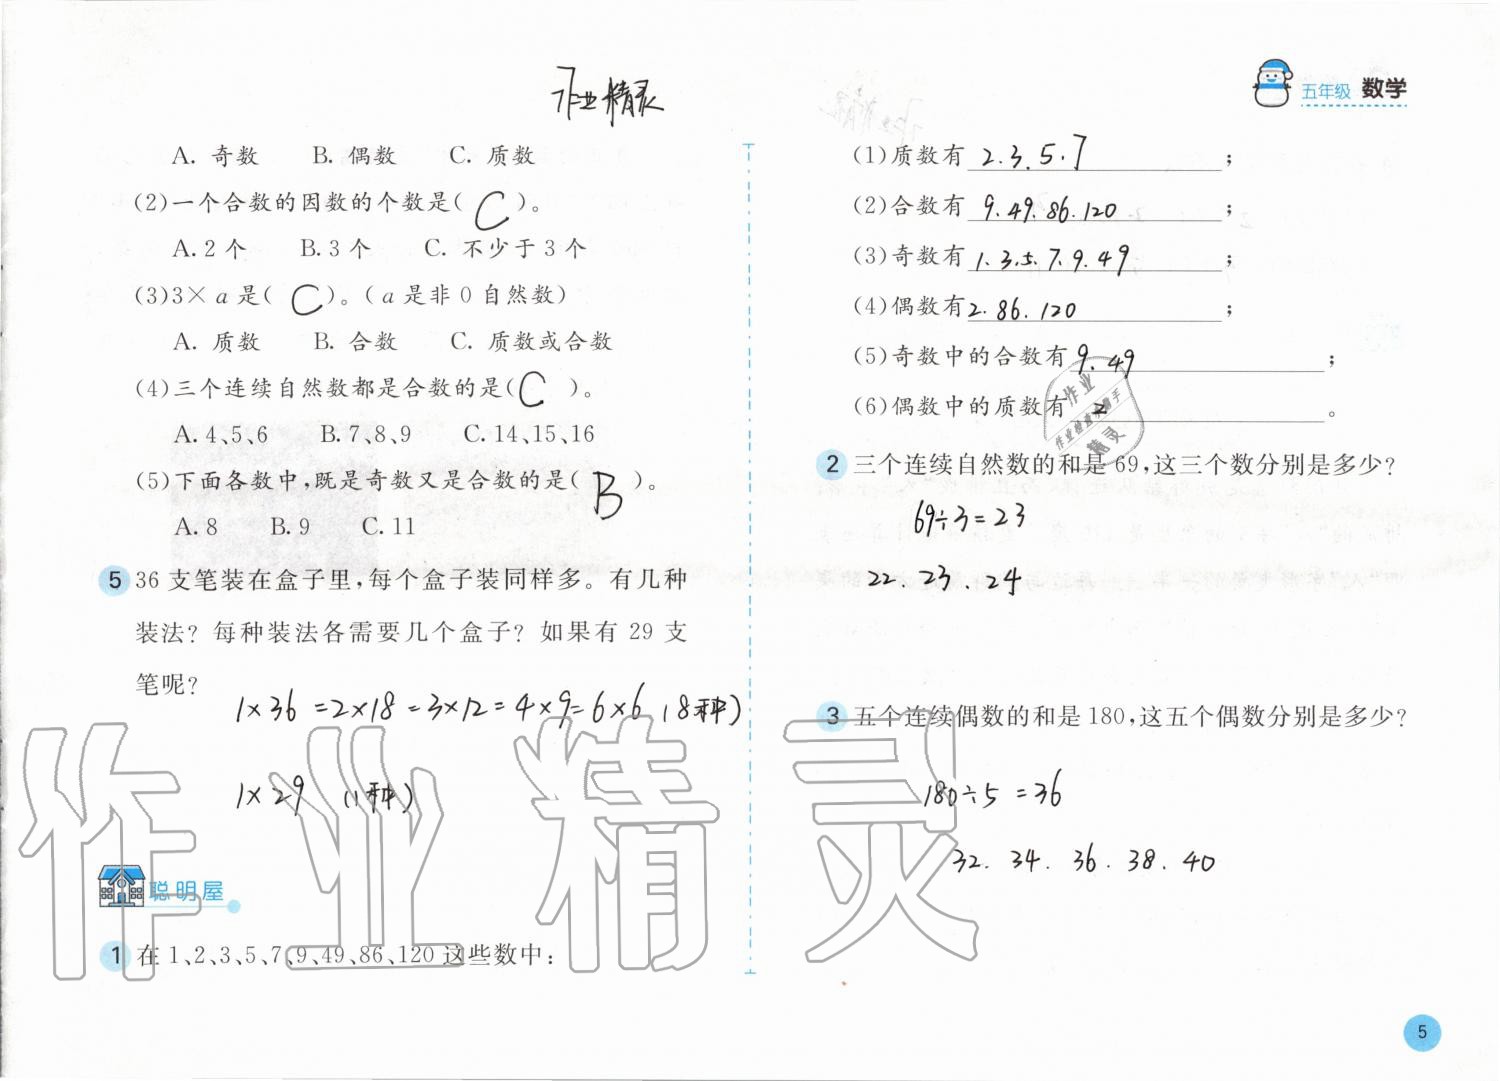 作业精灵
五年级 数学
A. 奇数 B. 偶数 C. 质数
(2)一个合数的因数的个数是( C )。
A. 2 个 B. 3 个 C. 不少于 3 个
(3)3× a 是( C )。(a 是非 0 自然数)
A. 质数 B. 合数 C. 质数或合数
(4)三个连续自然数都是合数的是( C )。
A. 4、5、6 B. 7、8、9 C. 14、15、16
(5)下面各数中,既是奇数又是合数的是( B )。
A. 8 B. 9 C. 11
5 36 支笔装在盒子里,每个盒子装同样多。有几种
装法? 每种装法各需要几个盒子? 如果有 29 支
笔呢?
1×36 =2×18 =3×12=4×9=6×6 (8种)
1×29 (1种)
聪明屋
1 在 1、2、3、5、7、9、49、86、120 这些数中:
(1)质数有 2.3.5.7 ;
(2)合数有 9.49.86.120 ;
(3)奇数有 1.3.5.7.9.49 ;
(4)偶数有 2.86.120 ;
(5)奇数中的合数有 9.49 ;
(6)偶数中的质数有 2 。
作业
作业检查小助手
精灵
2 三个连续自然数的和是 69,这三个数分别是多少?
69÷3=23
22.23.24
3 五个连续偶数的和是 180,这五个偶数分别是多少?
180÷5 =36
32.34.36.38.40
作业精灵
5